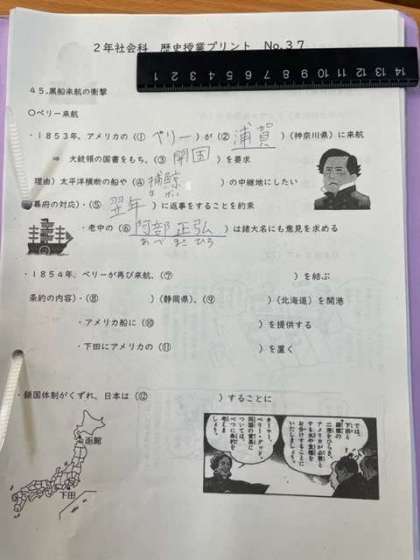 2年社会科 歴史授業プリント No.37
14 13 12 11 10 9 8 7 6 5 4 3 2 1
45.黒船来航の衝撃
〇ペリー来航
・1853年、アメリカの(① ペリー )が(② 浦賀 )(神奈川県)に来航
⇒ 大統領の国書をもち、(③ 開国 )を要求
理由)太平洋横断の船や(④ 捕鯨 )の中継地にしたい
幕府の対応)・(⑤ 翌年 )に返事をすることを約束
・老中の(⑥ 阿部 正弘 )は諸大名にも意見を求める
あべ まさ ひろ
・1854年、ペリーが再び来航、(⑦ )を結ぶ
条約の内容)・(⑧ )(静岡県)、(⑨ )(北海道)を開港
・アメリカ船に(⑩ )を提供する
・下田にアメリカの(⑪ )を置く
・鎖国体制がくずれ、日本は(⑫ )することに
函館
下田